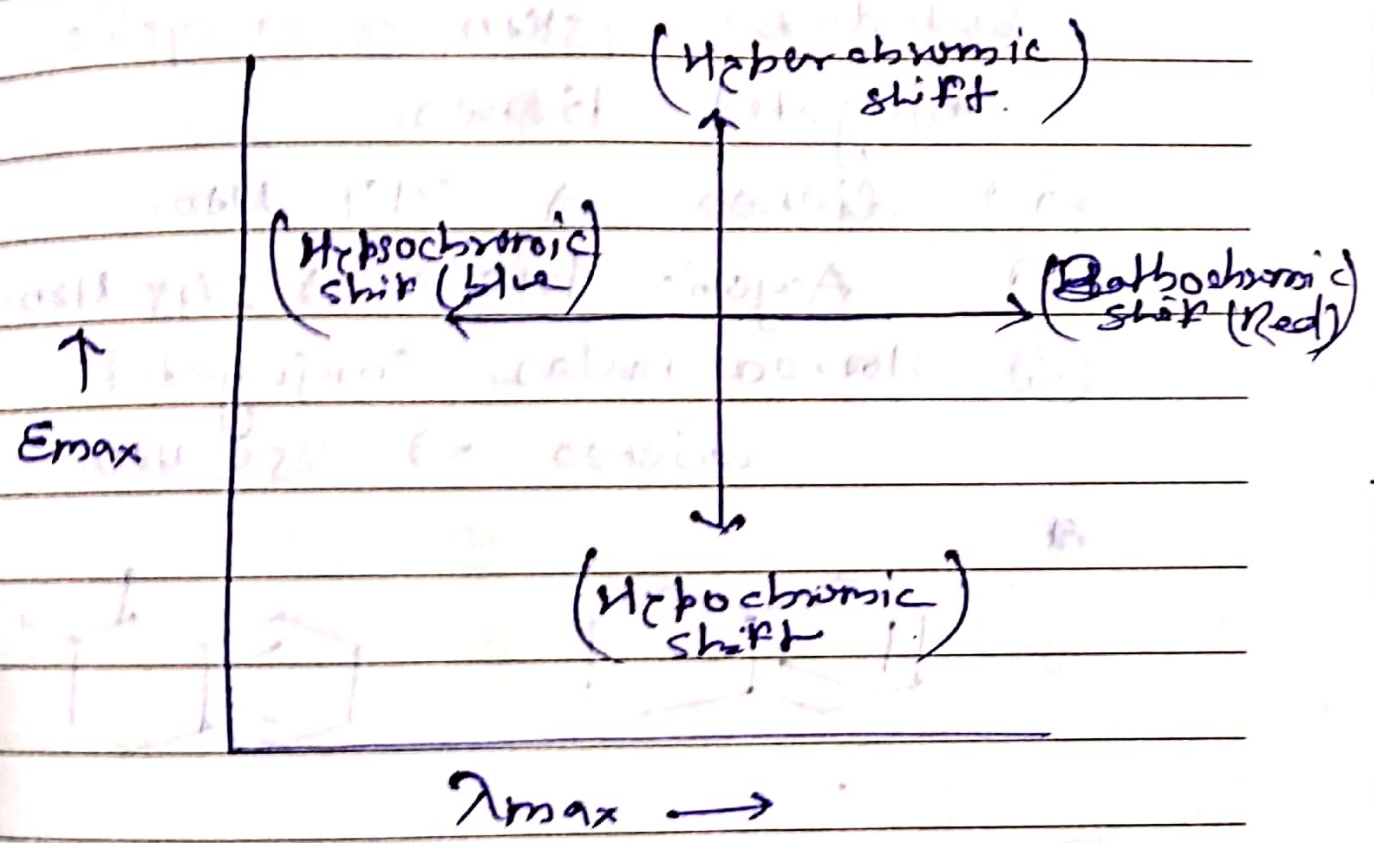 (Hyperchromic
shift.)
(Hypsochromic
shif (blue)
(Bathochromic
shif (Red))
Emax
(Hypochromic
shift)
λmax